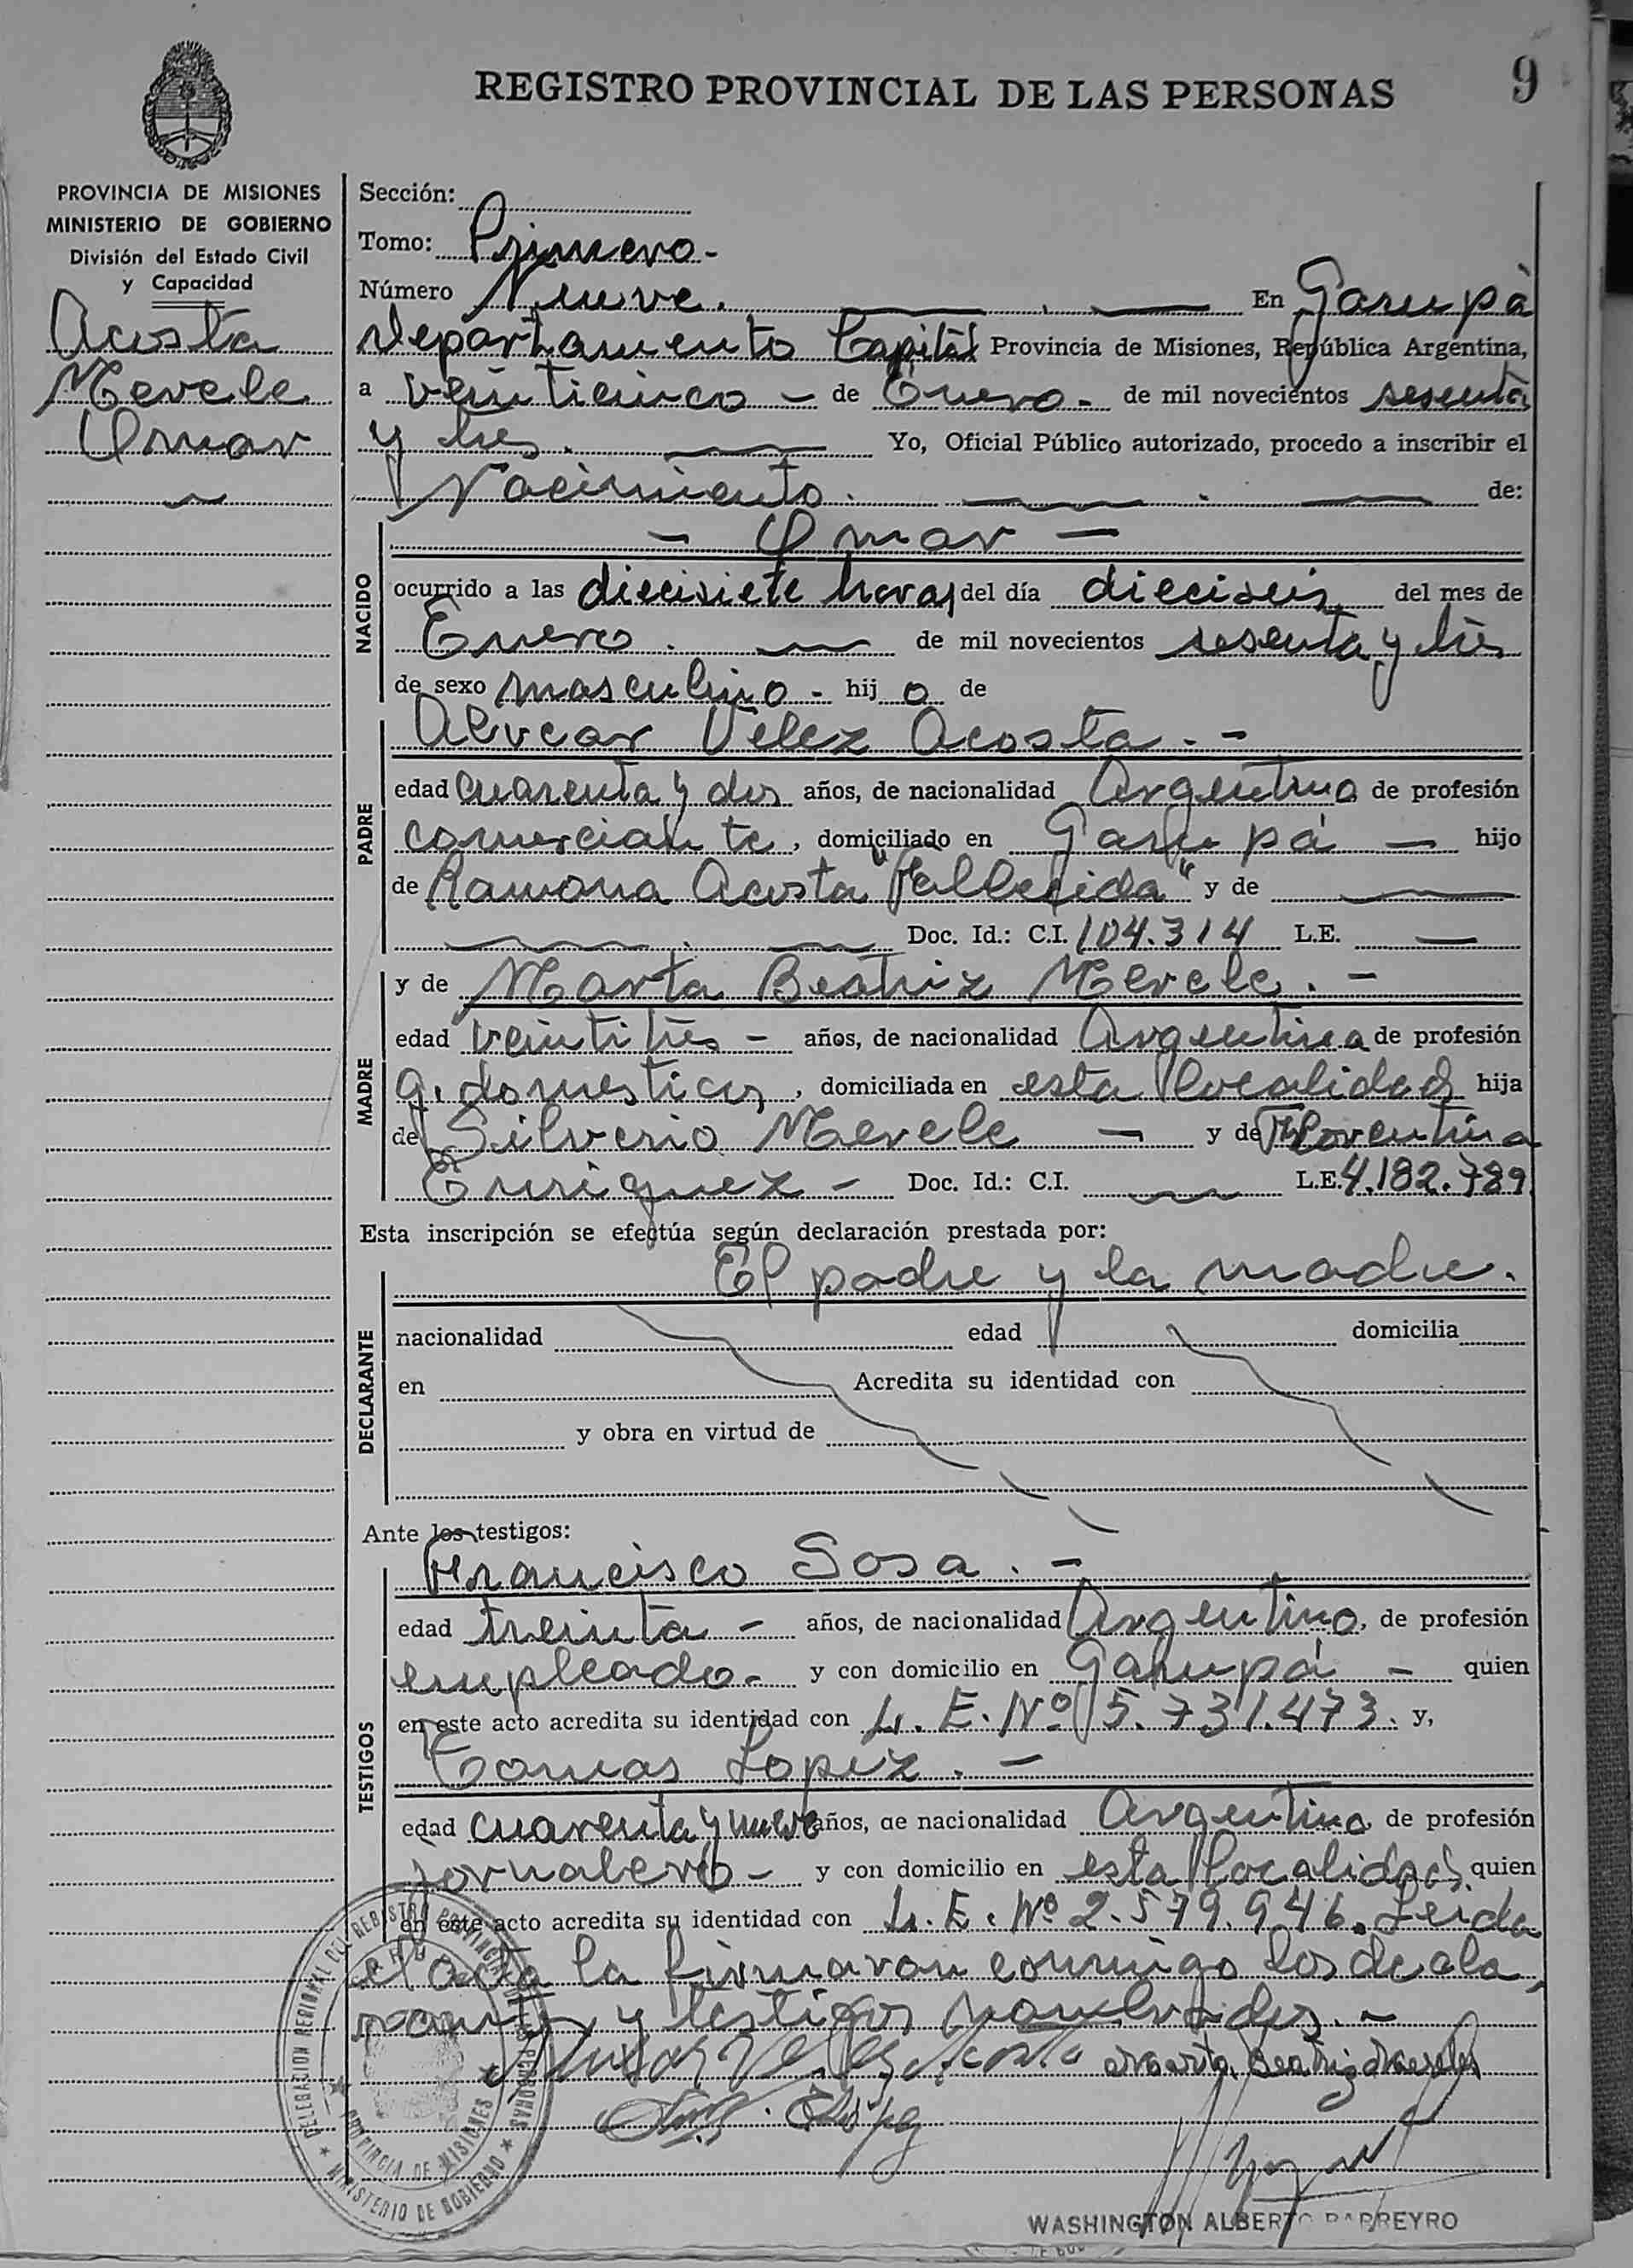 REGISTRO PROVINCIAL DE LAS PERSONAS
9
PROVINCIA DE MISIONES
MINISTERIO DE GOBIERNO
División del Estado Civil
y Capacidad
Acosta
Merele
Omar
Sección:
Tomo: Primero.-
Número Nueve. En Garupá
Departamento Capital Provincia de Misiones, República Argentina,
a veinticinco - de Enero - de mil novecientos sesenta
y tres. Yo, Oficial Público autorizado, procedo a inscribir el
Nacimiento. de:
NACIDO
- Omar -
ocurrido a las diecisiete horas del día dieciseis del mes de
Enero. de mil novecientos sesenta y tres
de sexo masculino - hijo de
PADRE
Alvear Velez Acosta. -
edad cuarenta y dos años, de nacionalidad Argentina de profesión
comerciante, domiciliado en Garupá - hijo
de Ramona Acosta "Fallecida" y de
Doc. Id.: C.I. 104.314 L.E. —
MADRE
y de Marta Beatriz Merele. -
edad veintitres - años, de nacionalidad Argentina de profesión
q. domesticos, domiciliada en esta localidad hija
de Silverio Merele - y de Florentina
Enriquez - Doc. Id.: C.I. — L.E. 4.182.789
Esta inscripción se efectúa según declaración prestada por:
DECLARANTE
El padre y la madre.
nacionalidad edad domicilia
en Acredita su identidad con
y obra en virtud de
Ante los testigos:
TESTIGOS
Francisco Sosa. -
edad treinta - años, de nacionalidad Argentino, de profesión
empleado - y con domicilio en Garupá - quien
en este acto acredita su identidad con L. E. Nº 5.731.473. y,
Tomas Lopez. -
edad cuarenta y nueve años, de nacionalidad Argentino de profesión
jornalero - y con domicilio en esta localidad quien
en este acto acredita su identidad con L. E. Nº 2.579.946. Leida
el acta la firmaron conmigo los decla
rantes y testigos nombrados. -
Alvear Velez Acosta Marta Beatriz Merele
DELEGACION REGIONAL DEL REGISTRO PROVINCIAL DE LAS PERSONAS
GARUPA
PROVINCIA DE MISIONES
MINISTERIO DE GOBIERNO
WASHINGTON ALBERTO BARREYRO